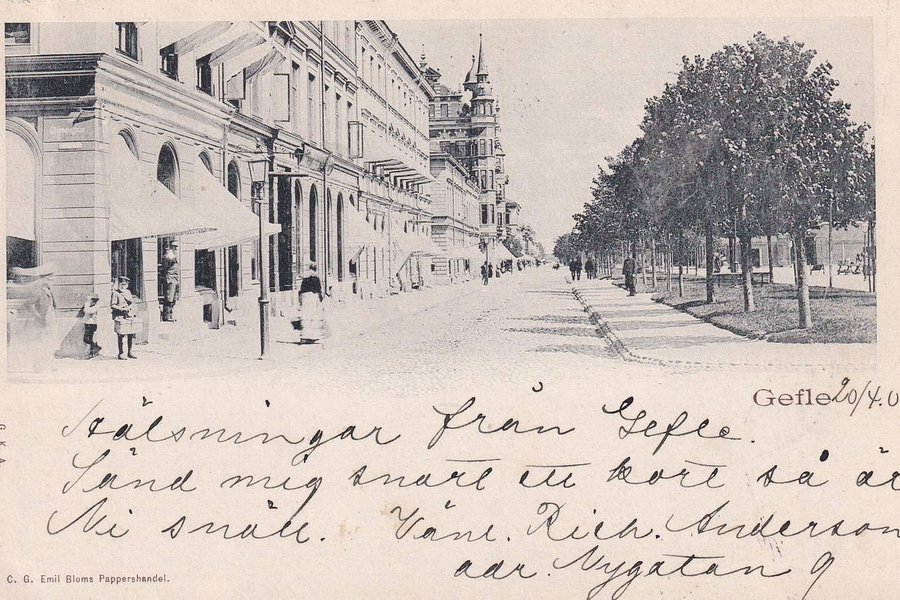 Gefle 20/4.0
Hälsningar från Gefle.
Sänd mig snart ett kort så är
Ni snäll. Vänl. Rich. Anderson
adr. Nygatan 9
C. G. Emil Bloms Pappershandel.
G. K. A.